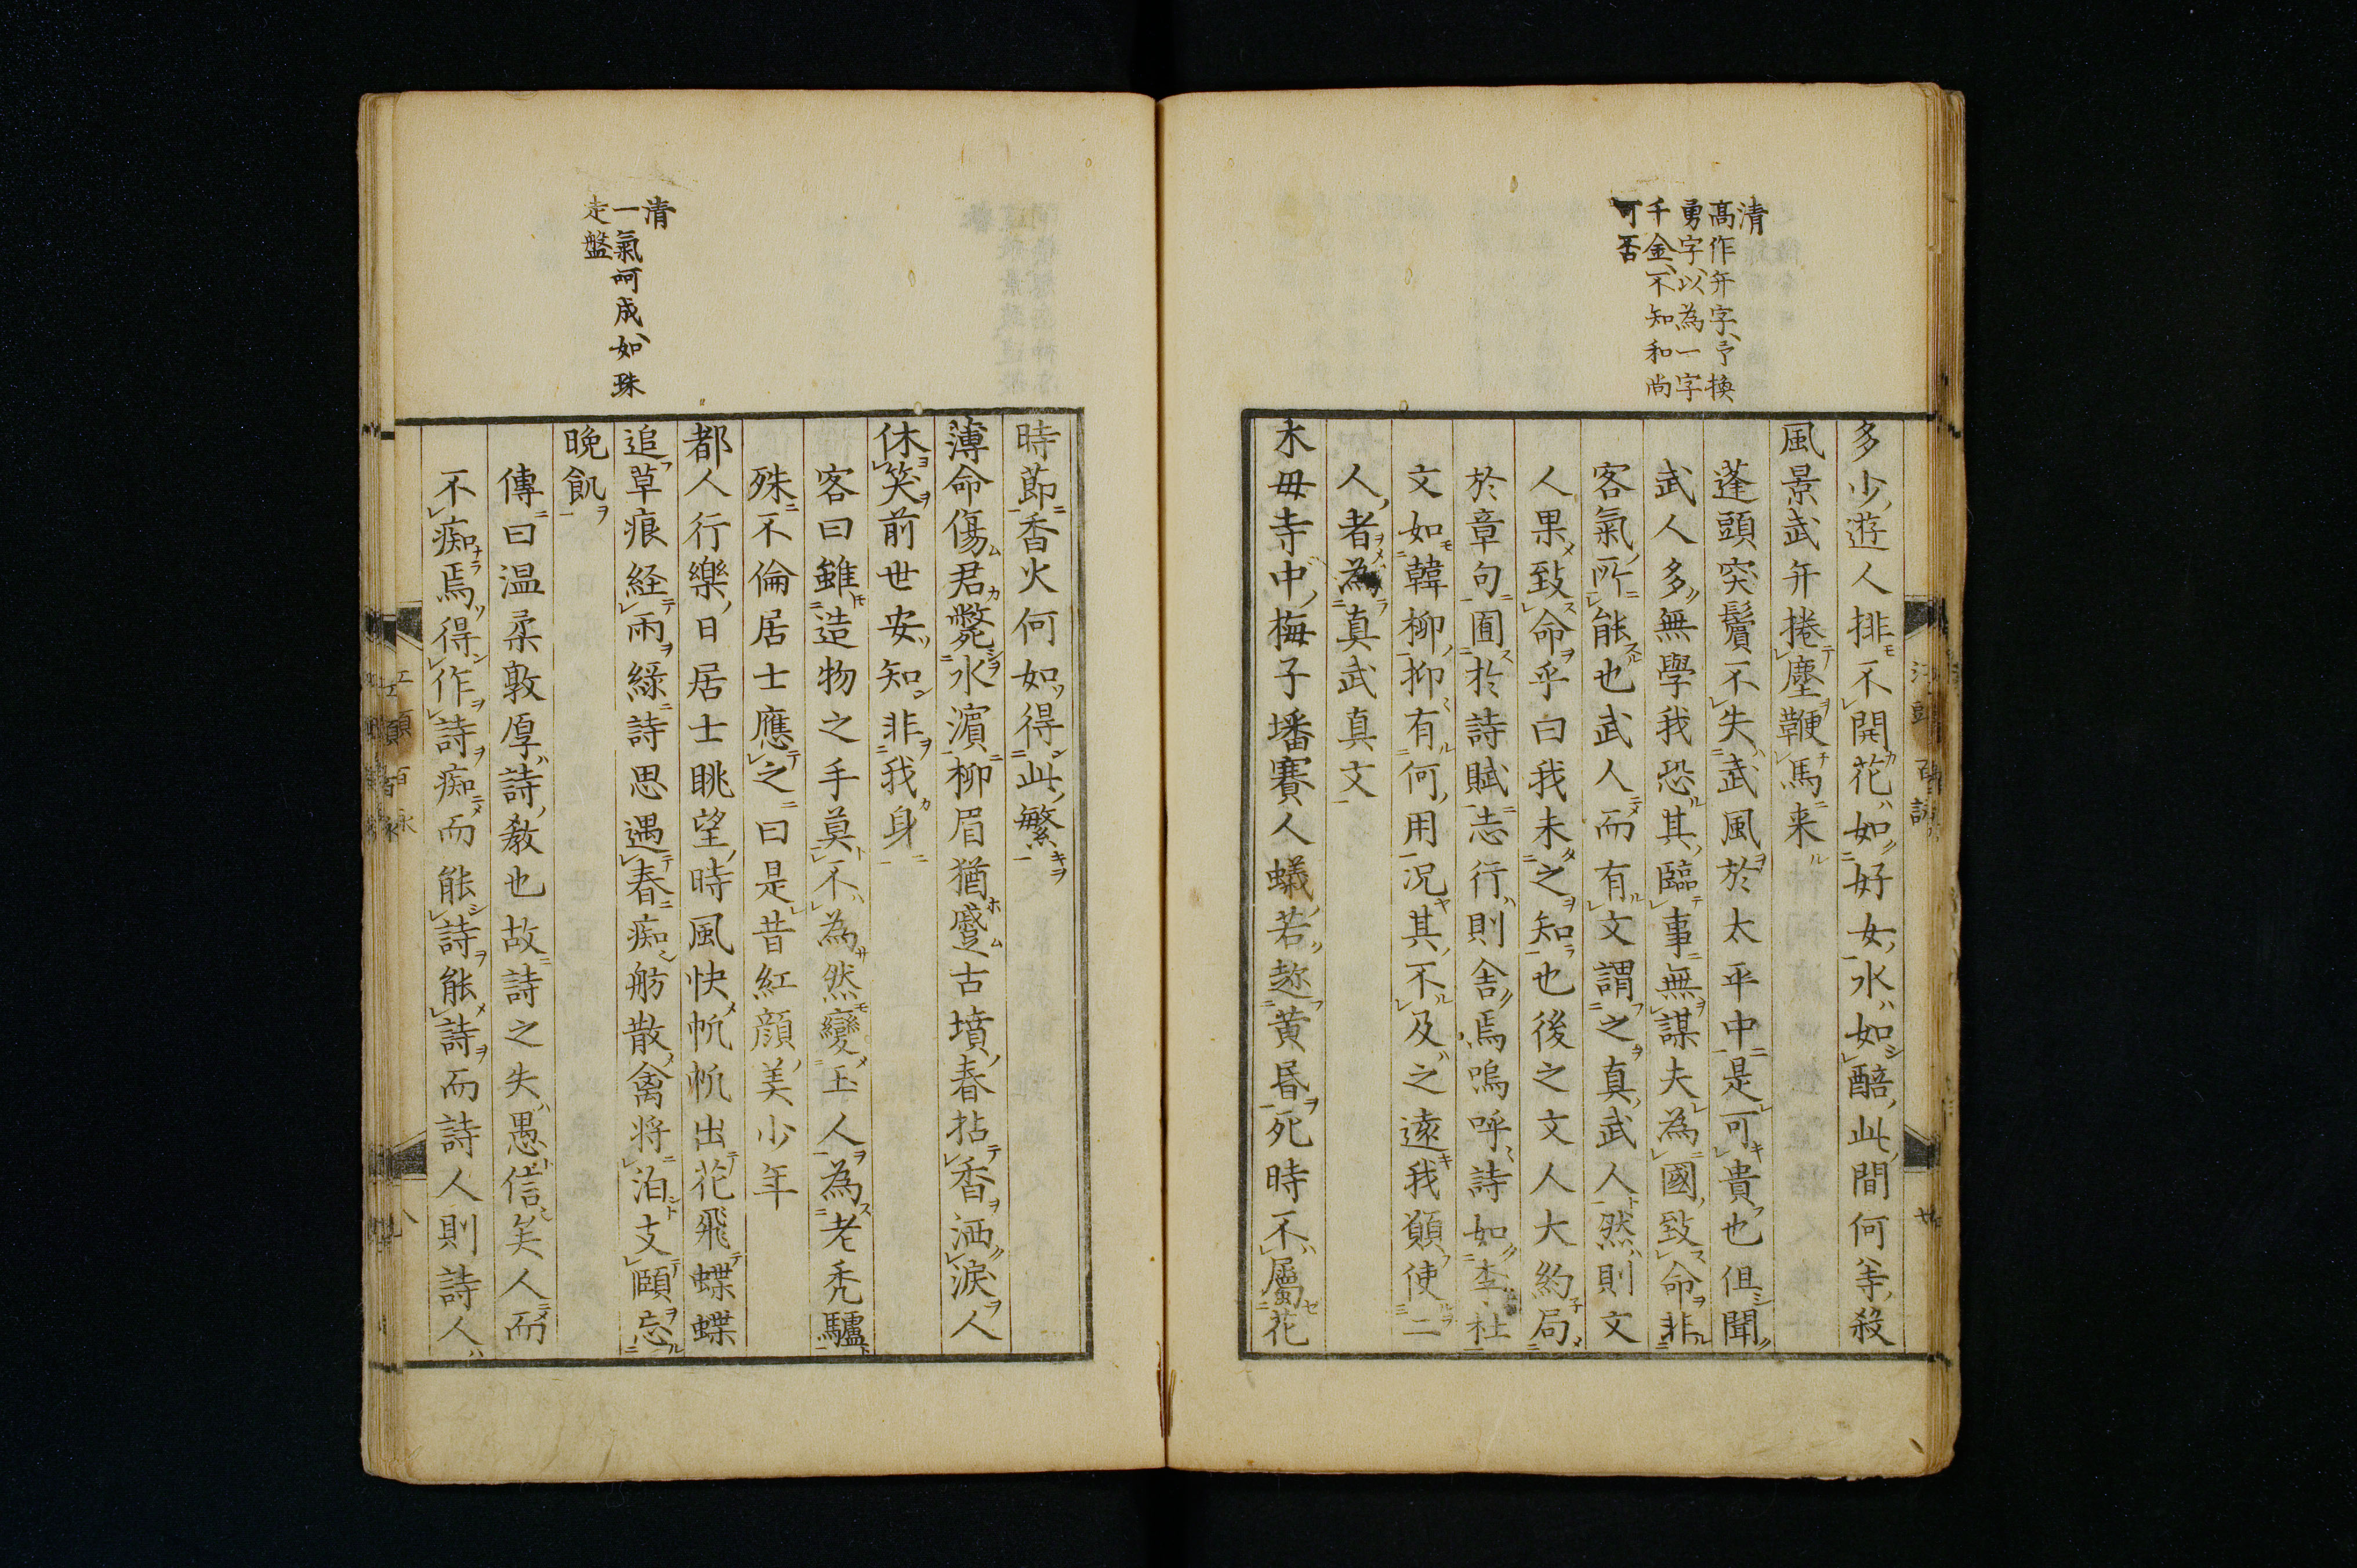 清
高作弁字、予換
勇字、以為一字
千金、不知和尚
可否
多少遊人排不開花如好女水如醅此間何等殺
風景武弁捲塵鞭馬来
蓬頭突鬢不失武風於太平中是可貴也但聞
武人多無學我恐其臨事無謀夫為國致命非
客氣所能也武人而有文謂之真武人然則文
人果致命乎曰我未之知也後之文人大約局
於章句囿於詩賦志行則舍焉嗚呼詩如李杜
文如韓柳抑有何用況其不及之遠我願使二
人者為真武真文
木毋寺中梅子墦賽人蟻若趂黄昏死時不屬花
清
一氣呵成、如珠
走盤
時節香火何如得此繁
薄命傷君斃水濵柳眉猶蹙古墳春拈香洒淚人
休笑前世安知非我身
客曰雖造物之手莫不為然變玉人為老禿驢
殊不倫居士應之曰是昔紅顔美少年
都人行樂日居士眺望時風快帆帆出花飛蝶蝶
追草痕経雨緑詩思遇春痴舫散禽将泊支頤忘
晩飢
傳曰温柔敦厚詩教也故詩之失愚信矣人而
不痴焉得作詩痴而能詩能詩而詩人則詩人